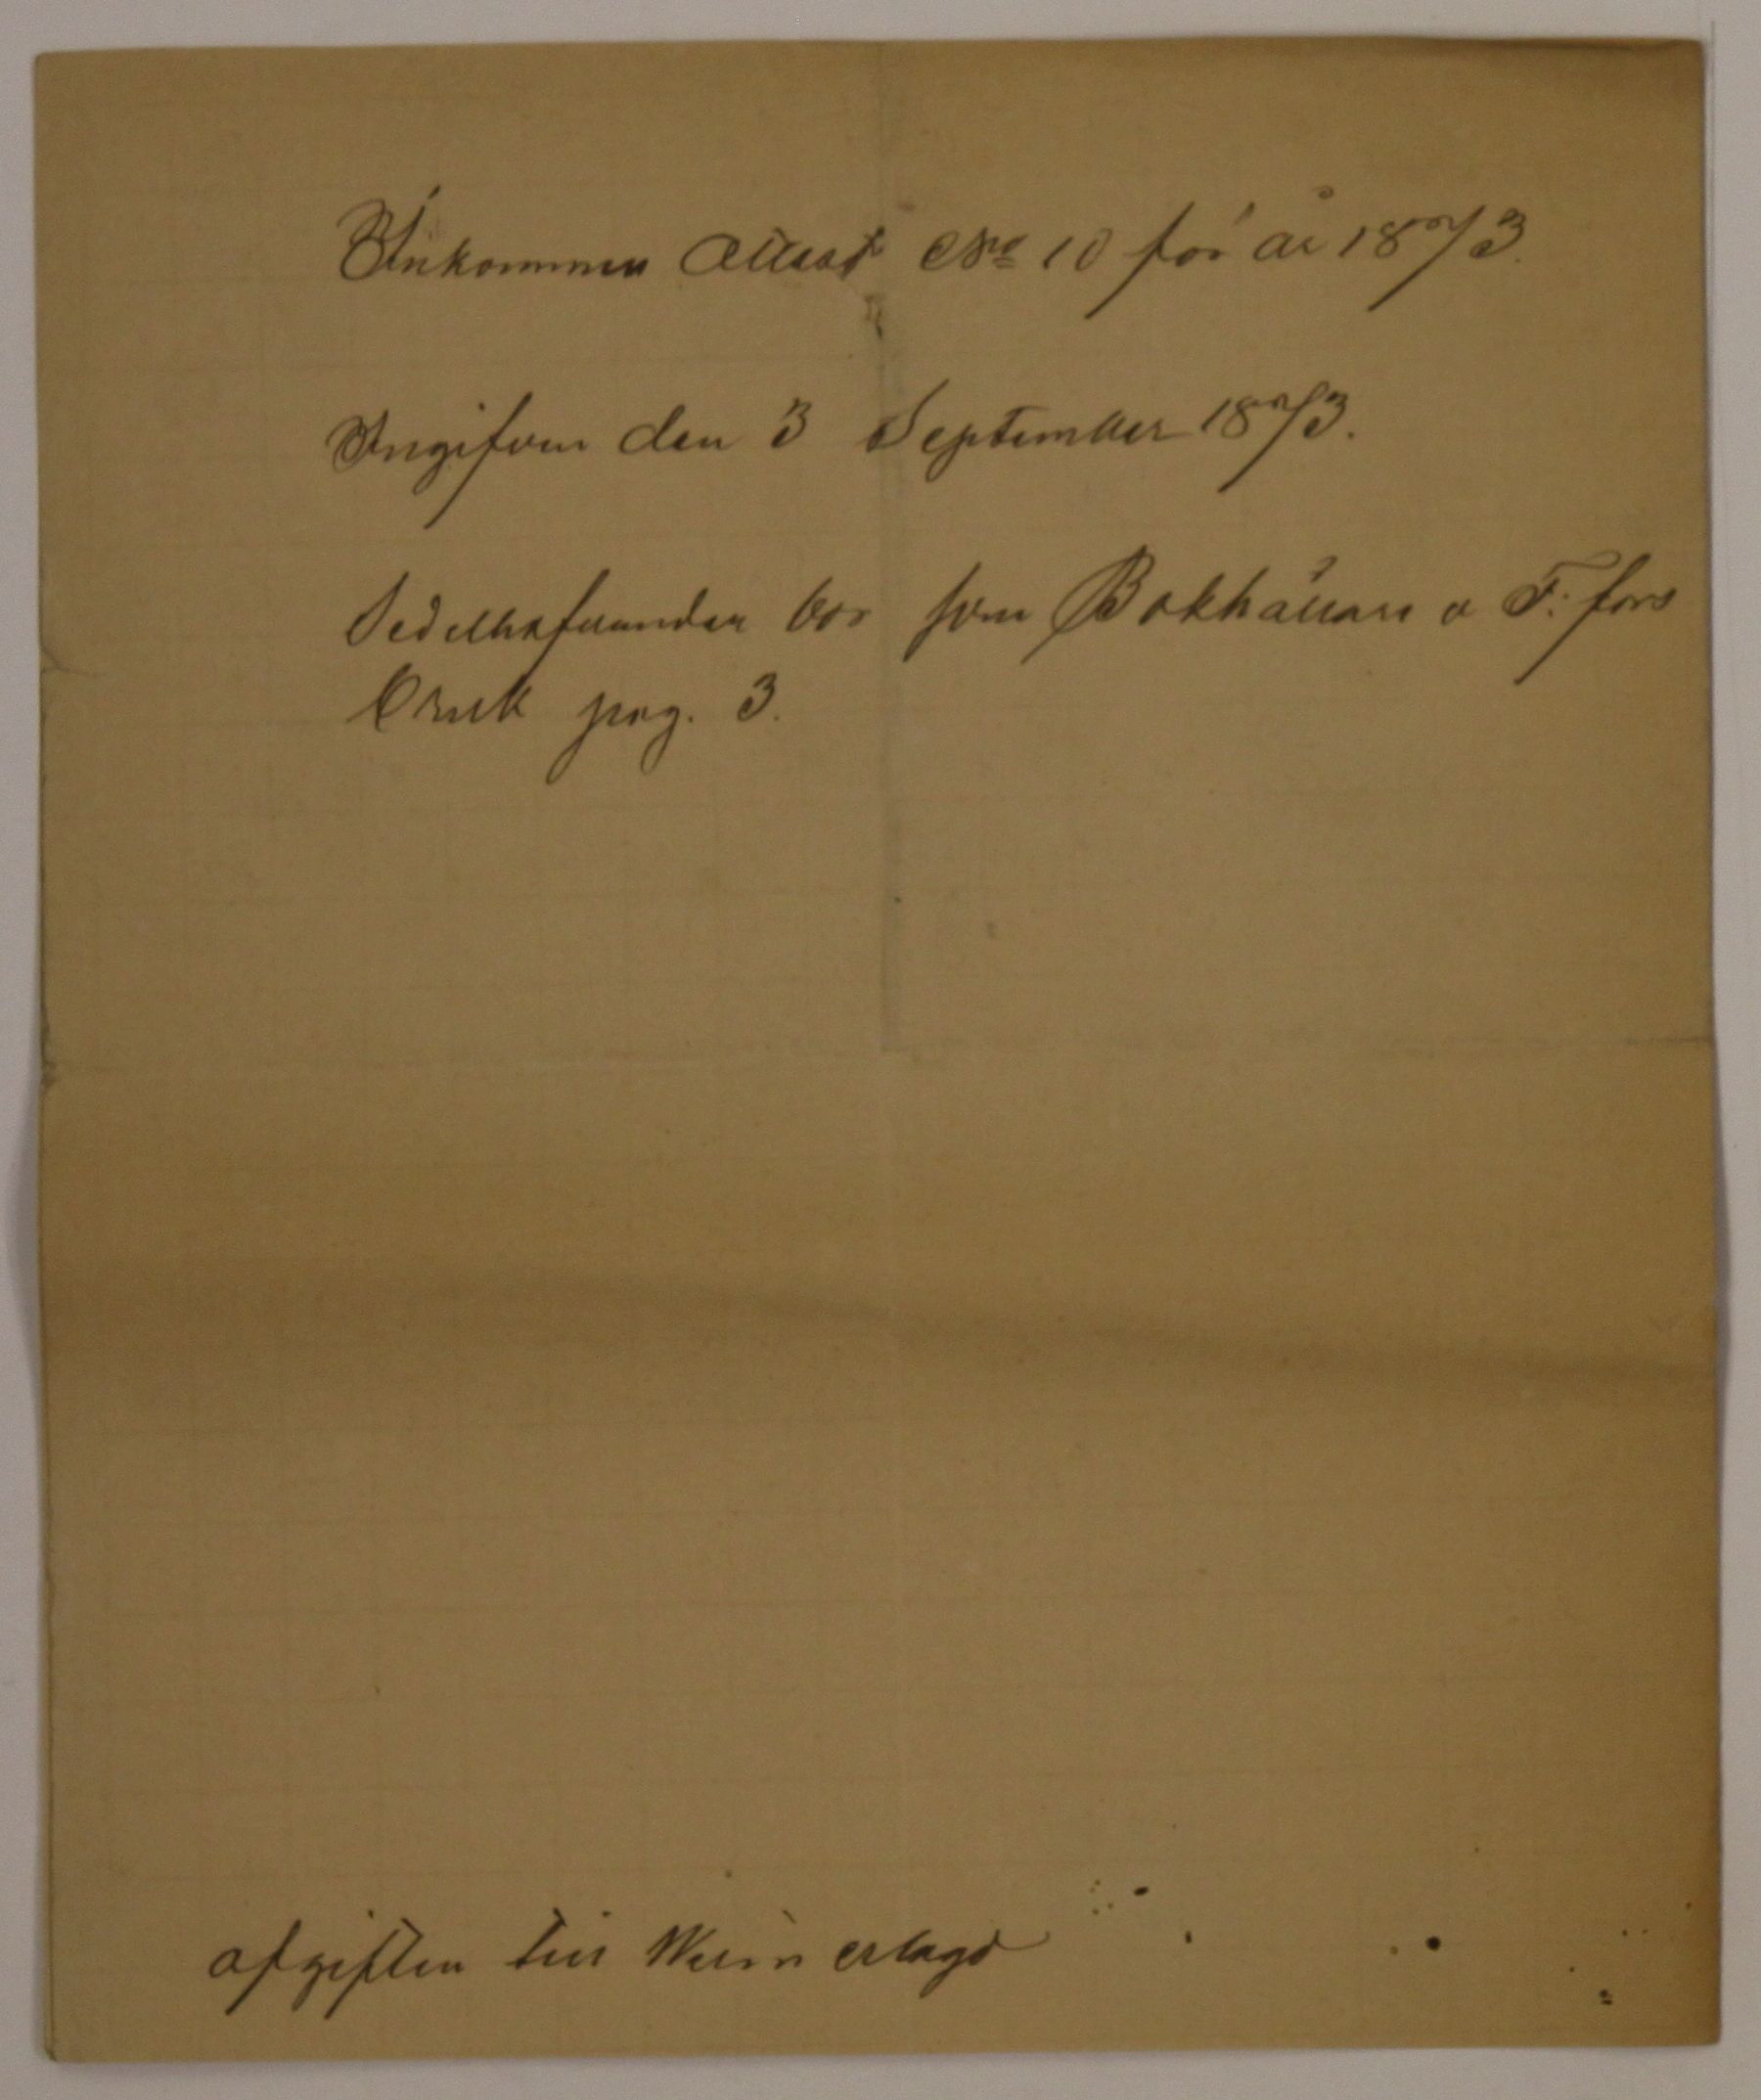 Inkommen Attest No 10 för år 1873.
Ingifven den 3 September 1873.
Sedelhafvanden bor som Bokhållare å F: fors
Bruk pag. 3.
afgiften till erlagd